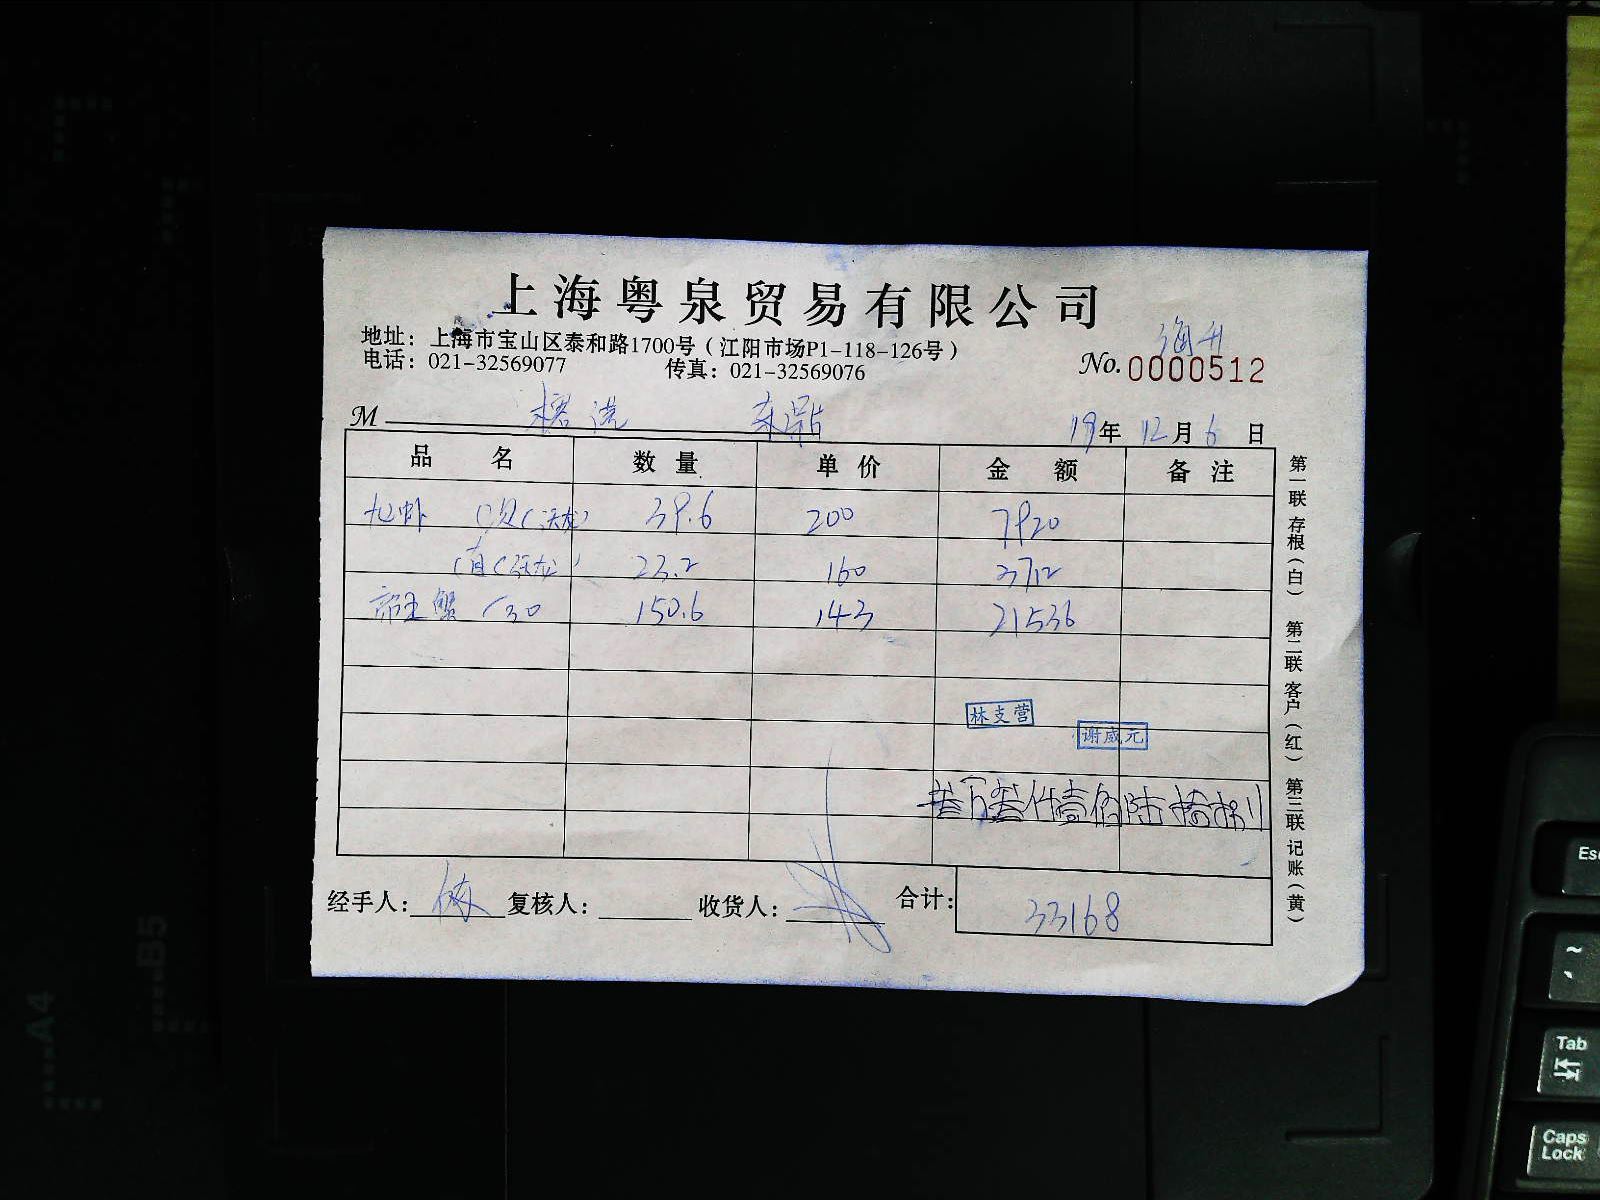 上海粤泉贸易有限公司
地址：上海市宝山区泰和路1700号（江阳市场P1-118-126号）
电话：021-32569077 传真：021-32569076
No. 0000512
M
19年 12月 6日
品名 数量 单价 金额 备注
39.6 200 7920
23.2 160 3712
帝王蟹 /30 150.6 143 21536
林支营
谢威元
叁万叁仟壹佰陆拾捌
经手人： 复核人： 收货人： 合计： 33168
第一联 存根（白） 第二联 客户（红） 第三联 记账（黄）
B5
A4
Esc
~
Tab
Caps Lock